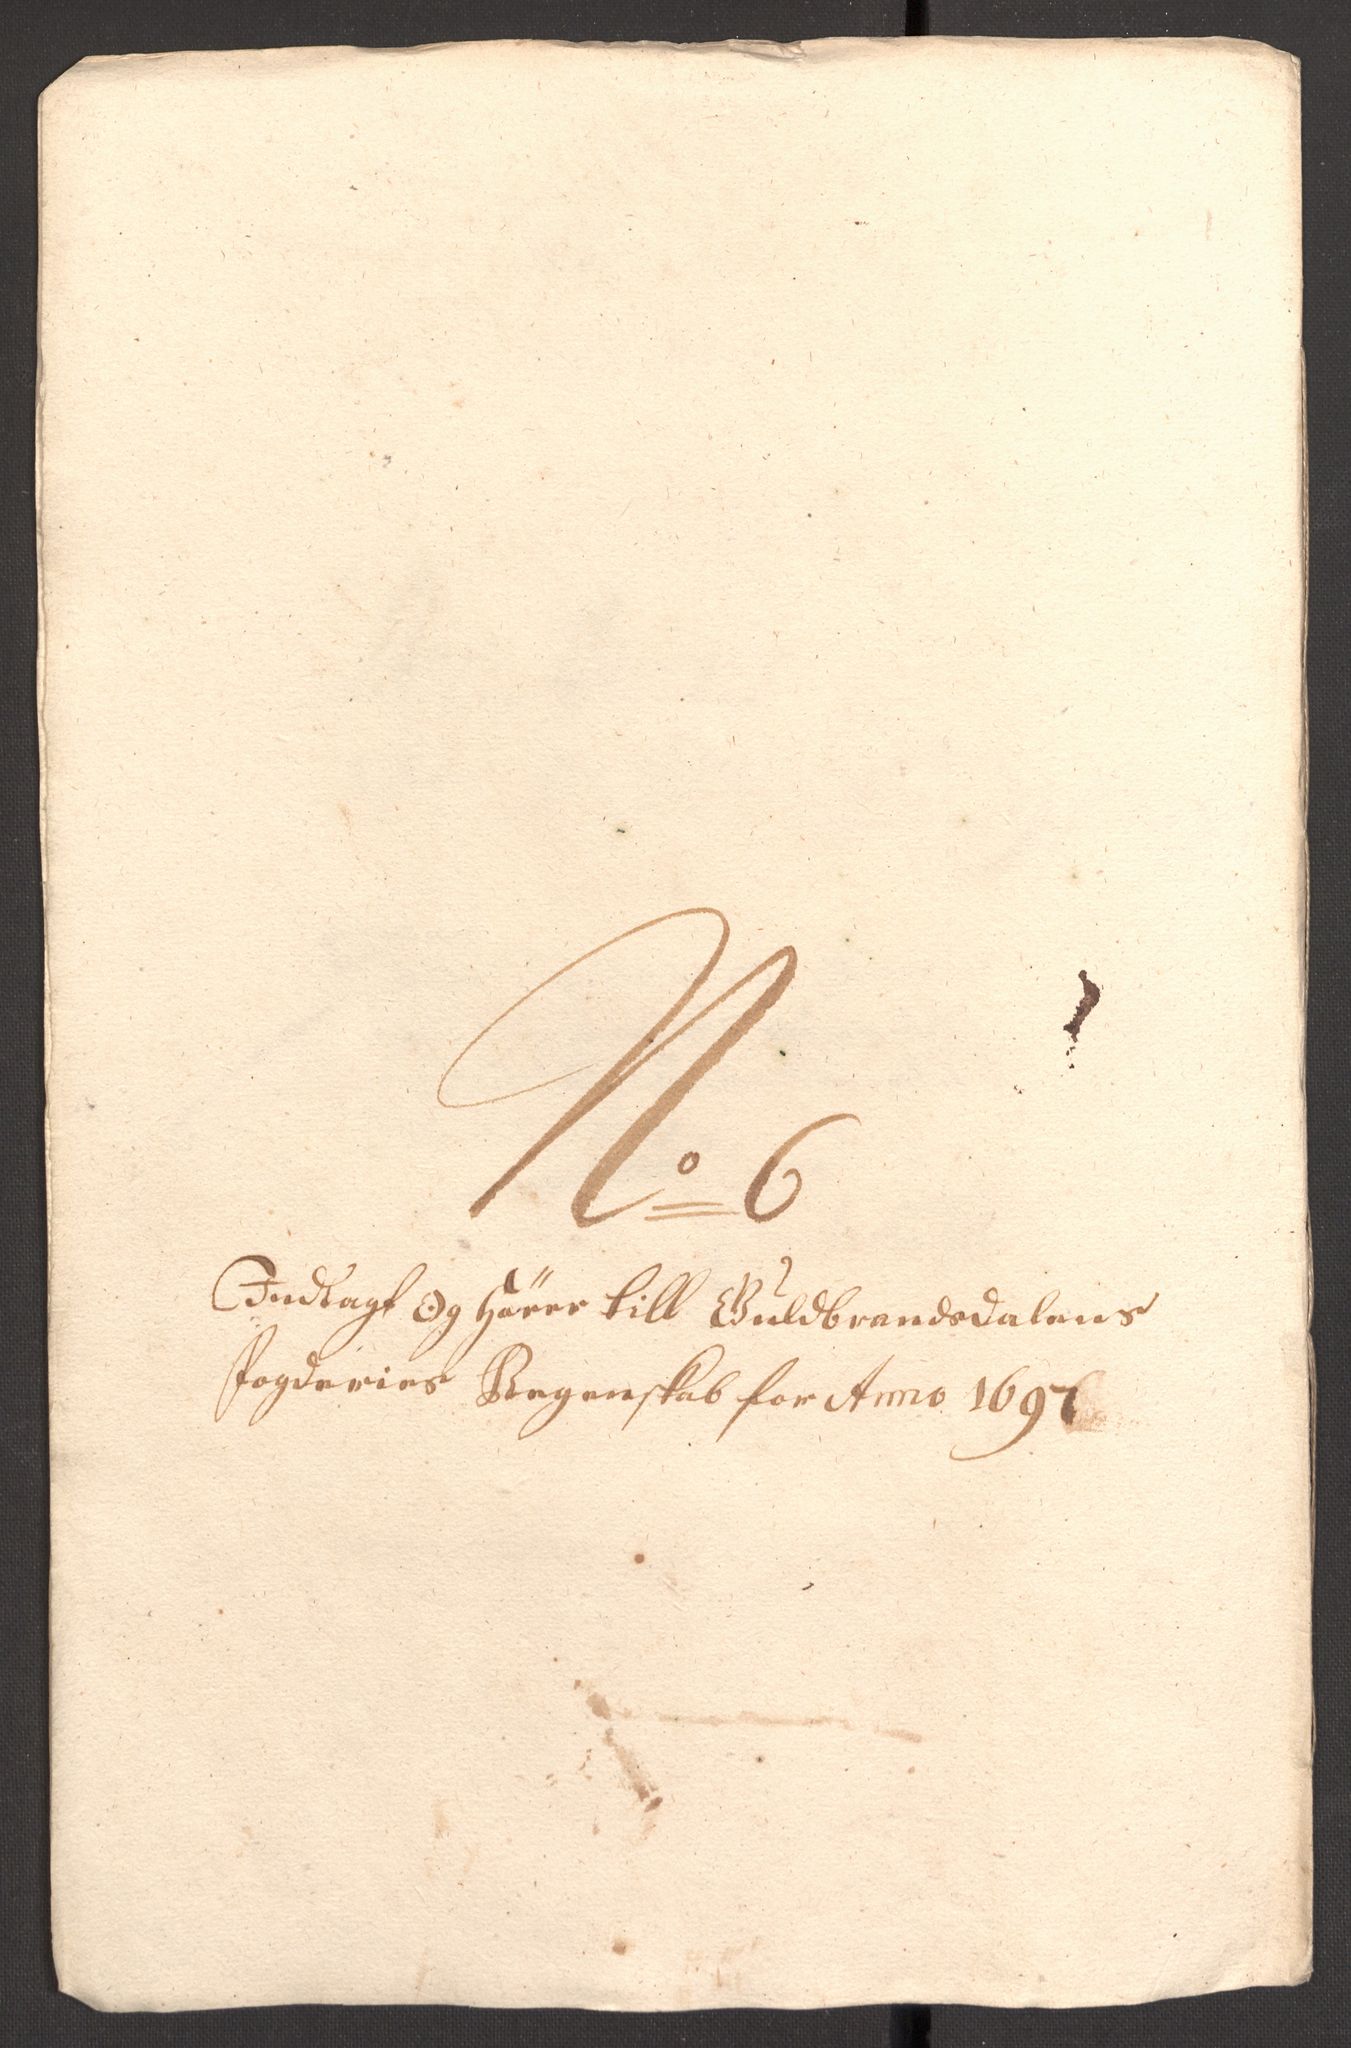 No 6
Indlagt og hörer till Guldbrandsdalens
fogderies Regenskab for Anno 1697